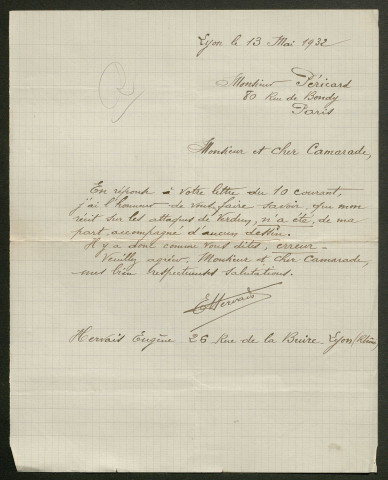 Lyon le 13 Mai 1932
Monsieur Péricard
80 Rue de Bondy
Paris
Monsieur et cher Camarade,
En réponse à votre lettre du 10 courant,
j'ai l'honneur de vous faire savoir, que mon
récit sur les attaques de Verdun, n'a été, de ma
part, accompagné d'aucun dessin.
Il y a donc comme vous dites, erreur.
Veuillez agréer, Monsieur et cher Camarade,
mes bien respectueuses salutations.
EHervais
Hervais Eugène 26 Rue de la Buire Lyon (Rhône)